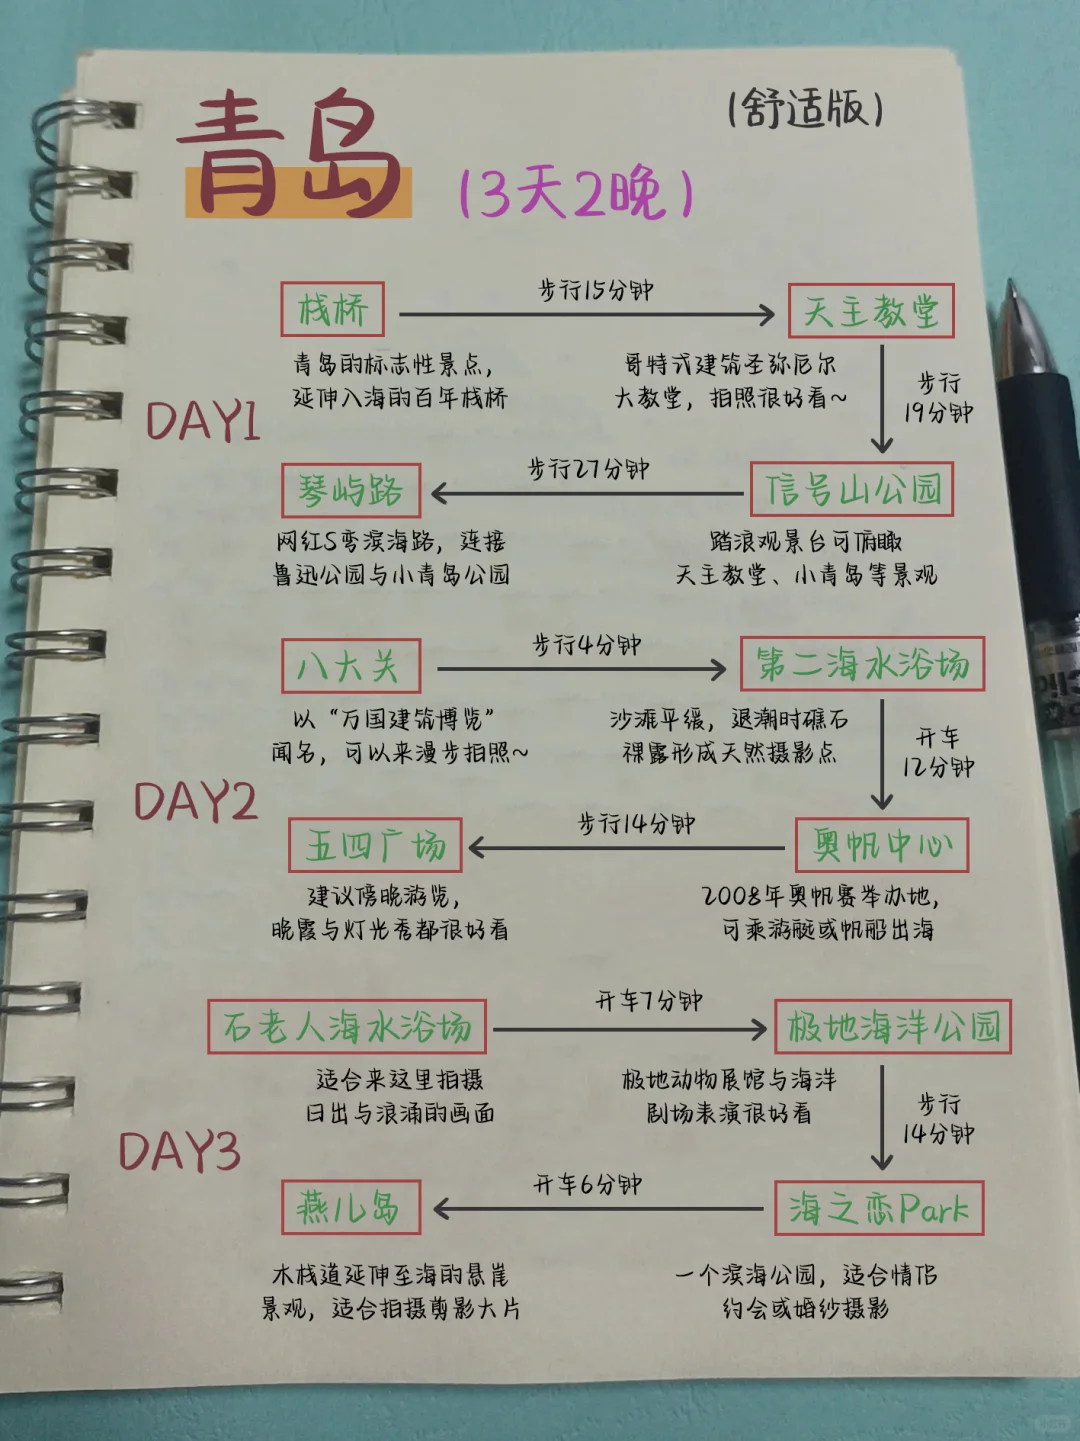 青岛
(舒适版)
(3天2晚)
DAY1
栈桥
步行15分钟
天主教堂
青岛的标志性景点，
延伸入海的百年栈桥
哥特式建筑圣弥厄尔
大教堂，拍照很好看~
步行
19分钟
信号山公园
步行27分钟
琴屿路
踏浪观景台可俯瞰
天主教堂、小青岛等景观
网红S弯滨海路，连接
鲁迅公园与小青岛公园
DAY2
八大关
步行4分钟
第二海水浴场
以“万国建筑博览”
闻名，可以来漫步拍照~
沙滩平缓，退潮时礁石
裸露形成天然摄影点
开车
12分钟
奥帆中心
步行14分钟
五四广场
2008年奥帆赛举办地，
可乘游艇或帆船出海
建议傍晚游览，
晚霞与灯光秀都很好看
DAY3
石老人海水浴场
开车7分钟
极地海洋公园
适合来这里拍摄
日出与浪涌的画面
极地动物展馆与海洋
剧场表演很好看
步行
14分钟
海之恋Park
开车6分钟
燕儿岛
一个滨海公园，适合情侣
约会或婚纱摄影
木栈道延伸至海的悬崖
景观，适合拍摄剪影大片